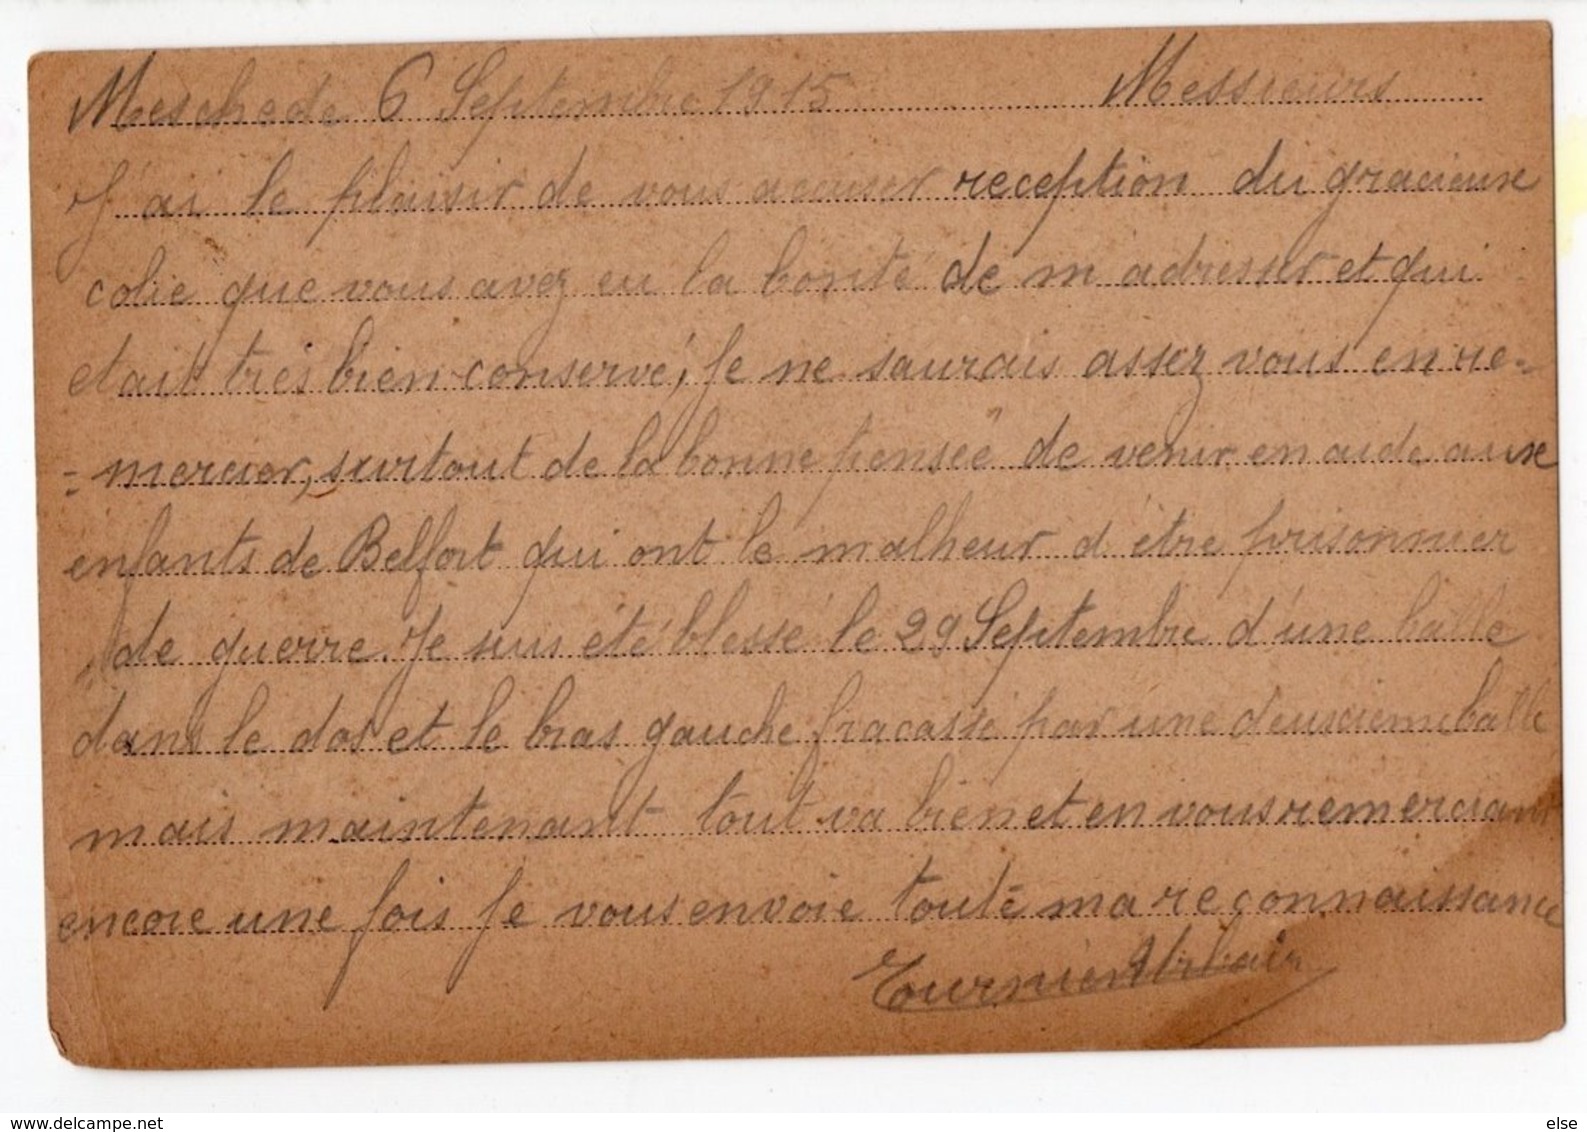 Meschede 6 Septembre 1915 Messieurs
J'ai le plaisir de vous accuser reception du gracieux
colie que vous avez eu la bonté de m'adresser et qui
etait très bien conservé, Je ne saurais assez vous en re=
=mercier, surtout de la bonne pensée de venir en aide aux
enfants de Belfort qui ont le malheur d'être prisonnier
de guerre. Je suis été blessé le 29 Septembre d'une balle
dans le dos et le bras gauche fracassé par une deuxieme balle
mais maintenant tout va bien et en vous remerciant
encore une fois Je vous envoie toute ma reconnaissance
Tournier Urbain
www.delcampe.net
else